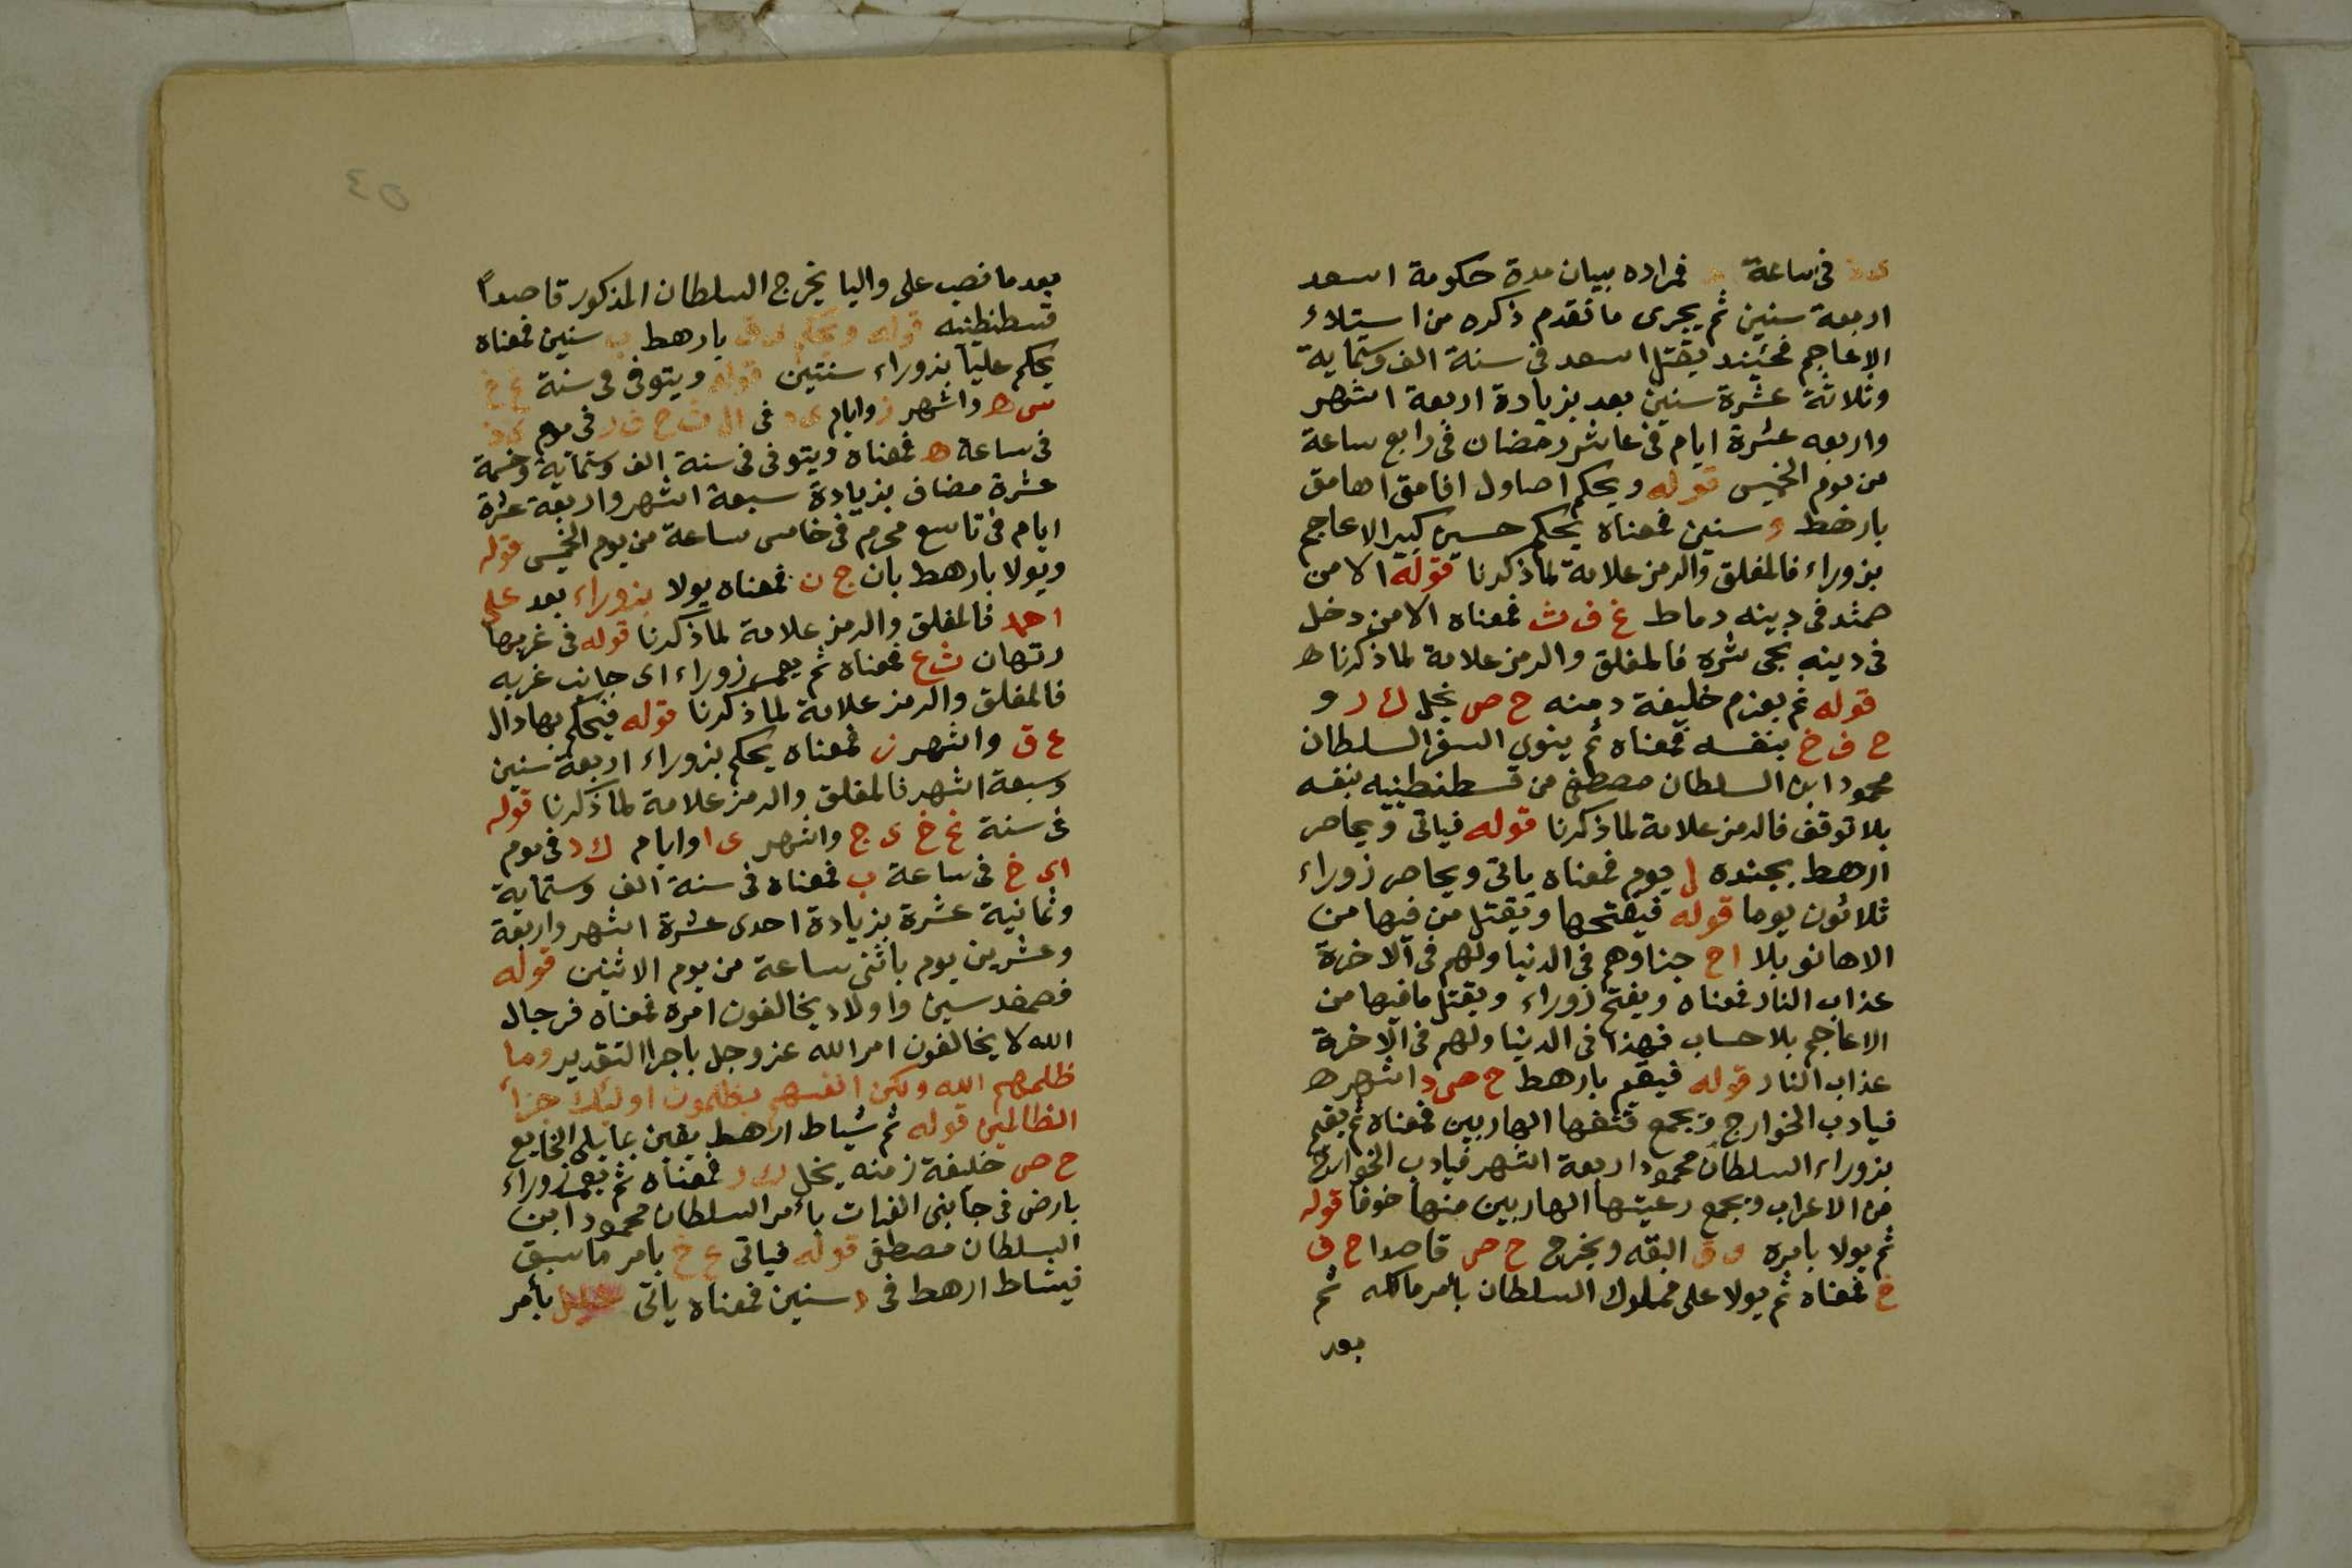 فى ساعة فمراده ببيان مدة حكومة اسعد
اربعة سنين ثم يجرى ما تقدم ذكره من استيلاء
الاعاجم فحيئند يقتل اسعد فى سنة الف وستماية
وثلاثة عشرة سنين بعد بزيادة اربعة اشهر
واربعه عشرة ايام فى عاشر رمضان فى رابع ساعة
من يوم الخميس قوله ويحكم اصاول افامق اهامق
بارهط و سنين فمعناه يحكم حسين كبير الاعاجم
بزوراء فالمغلق والرمز علامة لما ذكرنا قوله الا من
همثد فى دينه دماط غ ف ث فمعناه الا من دخل
فى دينه نجى شره فالمغلق والرمز علامة لما ذكرنا ط
قوله ثم يعزم خليفة دمنه ح ص نجل ك د و
ح ف خ بنفسه فمعناه ثم ينوى السفر السلطان
محمود ابن السلطان مصطفى من قسطنطنيه بنفسه
بلا توقف فالرمز علامة لما ذكرنا قوله فياتى ويحاصر
ارهط بجنده ل يوم فمعناه ياتى ويحاصر زوراء
ثلاثون يوما قوله فيفتحها ويقتل من فيها من
الاهانو بلا اح جزاوهم فى الدنيا ولهم فى الاخرة
عذاب النار فمعناه ويفتح زوراء ويقتل ما فيها من
الاعاجم بلا حساب فهذا فى الدنيا ولهم فى الاخرة
عذاب النار قوله فيقم بارهط ح ص د اشهر ط
فيادب الخوارج ويجمع الهاربين فمعناه ثم يقيم
بزوراء السلطان محمود اربعة اشهر فيادب الخوارج
من الاعراب ويجمع رعيتها الهاربين منها خوفا قوله
ثم يولا بامره البقه ويخرج ح ص قاصدا ح ف
خ فمعناه ثم يولا على مملوك السلطان بامر مالكه ثم
بعد
٥٤
بعد ما نصب على واليا يخرج السلطان المذكور قاصداً
قسطنطنيه قوله ويحكم بارهط ب سنين فمعناه
يحكم علياً بزوراء سنتين قوله ويتوفى فى سنة غ خ
واشهر ز وايام فى فى يوم
فى ساعة ه فمعناه ويتوفى فى سنة الف وستماية وخمسة
عشرة مضاف بزيادة سبعة اشهر واربعة عشرة
ايام فى تاسع محرم فى خامس ساعة من يوم الخميس قوله
ويولا بارهط بان ج ن فمعناه يولا بزوراء بعد على
احمد فالمغلق والرمز علامة لما ذكرنا قوله فى غربيها
رتهان ث ع فمعناه ثم يعمر زوراء اى جانب غربه
فالمغلق والرمز علامة لما ذكرنا قوله فيحكم بها دال
ع ق واشهر ز فمعناه يحكم بزوراء اربعة سنين
وسبعة اشهر فالمغلق والرمز علامة لما ذكرنا قوله
فى سنة غ خ ى ج واشهر ى ا وايام ك د فى يوم
اى خ فى ساعة ب فمعناه فى سنة الف وستماية
وثمانية عشرة بزيادة احدى عشرة اشهر واربعة
وعشرين يوم باثنى ساعة من يوم الاثنين قوله
واولاد يخالفون امره فمعناه فرجال
الله لا يخالفون امر الله عز وجل باجرا التقدير وما
ظلمهم الله ولكن انفسهم يظلمون اوليك جزاء
الظالمين قوله ثم شياط ارهط يقين بمايلى الخايع
ح ص خليفة زمنه نجل ك د فمعناه ثم يعمر زوراء
بارض فى جانبى الفرات بأمر السلطان محمود ابن
السلطان مصطفى قوله فياتى ع خ بامر ما سبق
فيشاط ارهط فى د سنين فمعناه ياتى بأمر